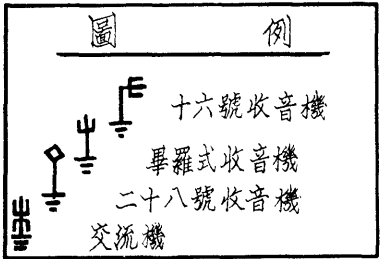 圖例
十六號收音機
畢羅式收音機
二十八號收音機
交流機